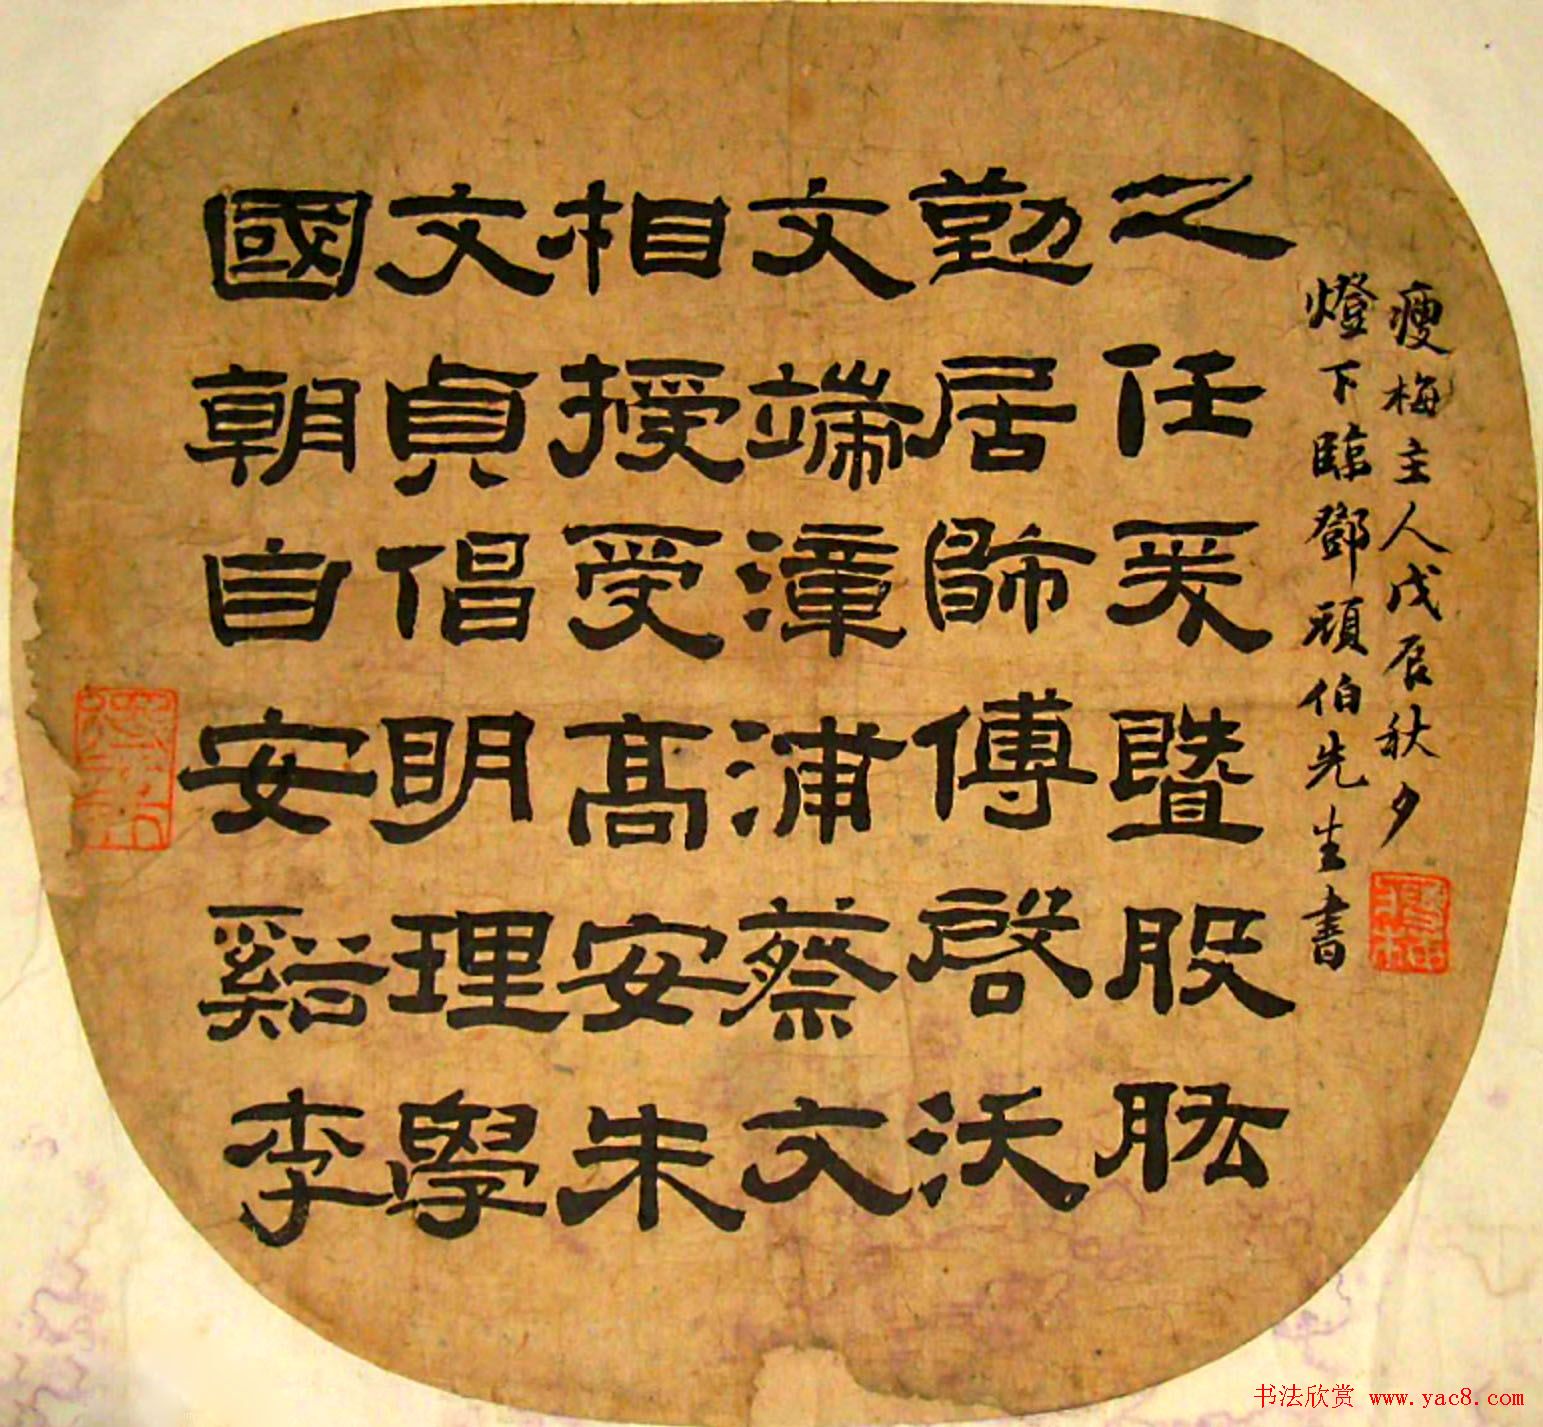 國朝自安谿李
文貞倡明理學
相授受髙安朱
文端漳浦蔡文
勤居師傅啓沃
之任爰暨股肱
燈下臨鄧頑伯先生書
瘦梅主人戊辰秋夕
书法欣赏 www.yac8.com